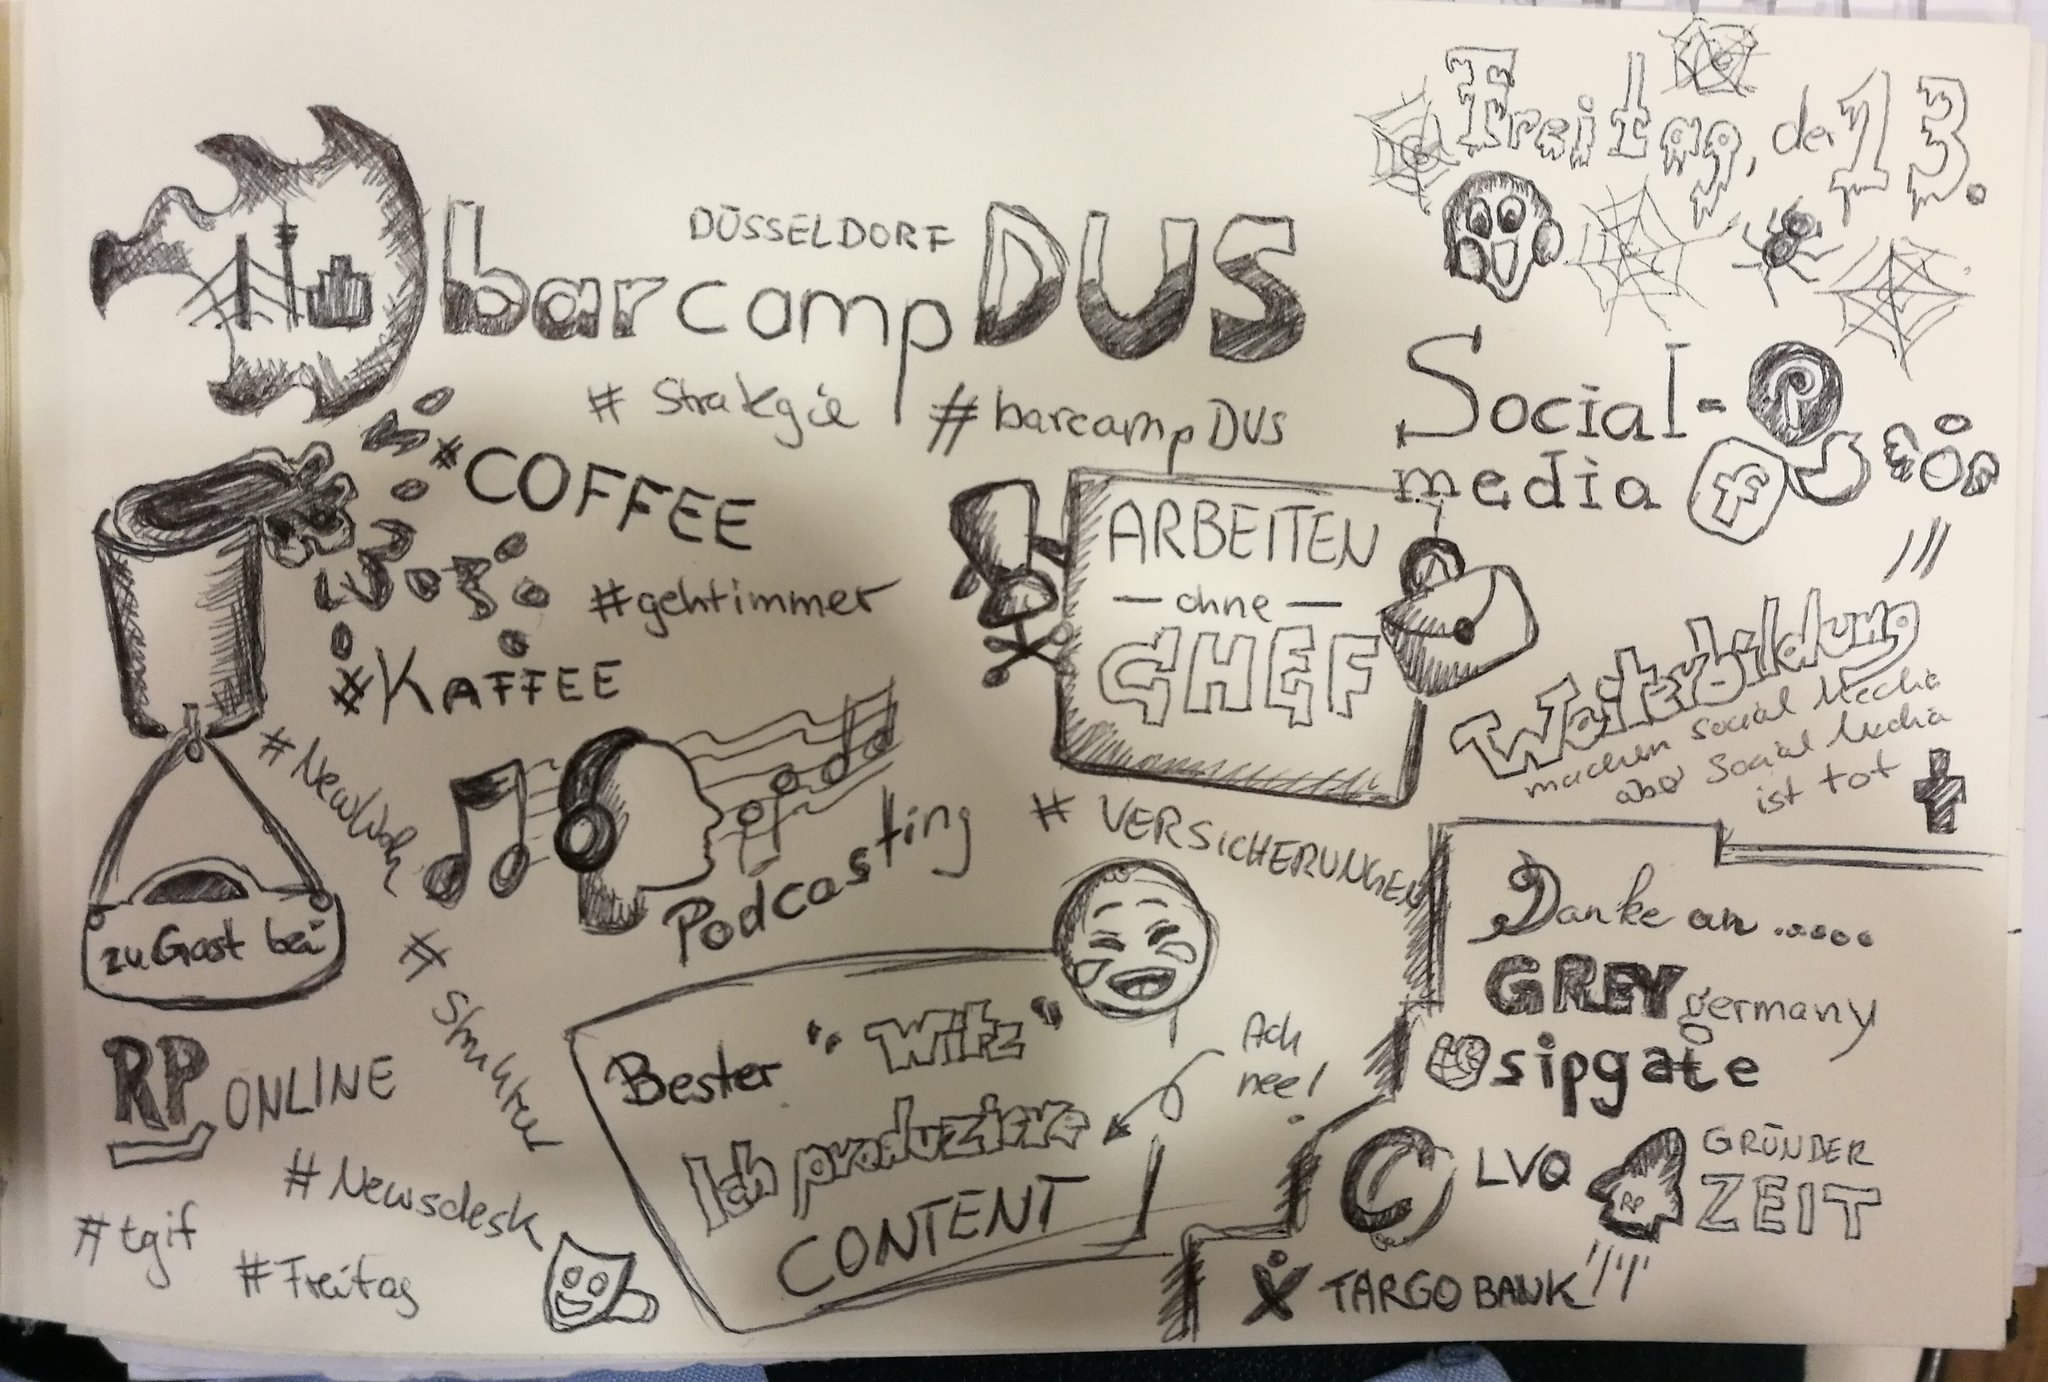 Freitag, der 13.
DÜSSELDORF
barcampDUS
#Strategie
#barcampDUS
Social-
media
#COFFEE
#gehtimmer
#KAFFEE
ARBEITEN
— ohne —
CHEF
Weiterbildung
machen social Media
aber Social Media
ist tot
#NewWork
Podcasting
#VERSICHERUNGEN
zu Gast bei
RP ONLINE
#Struktur
#Newsdesk
#tgif
#Freitag
Bester "Witz"
Ich produziere
CONTENT
Ach
nee!
Danke an .....
GREY germany
sipgate
LVQ
RP
GRÜNDER
ZEIT
TARGO BANK